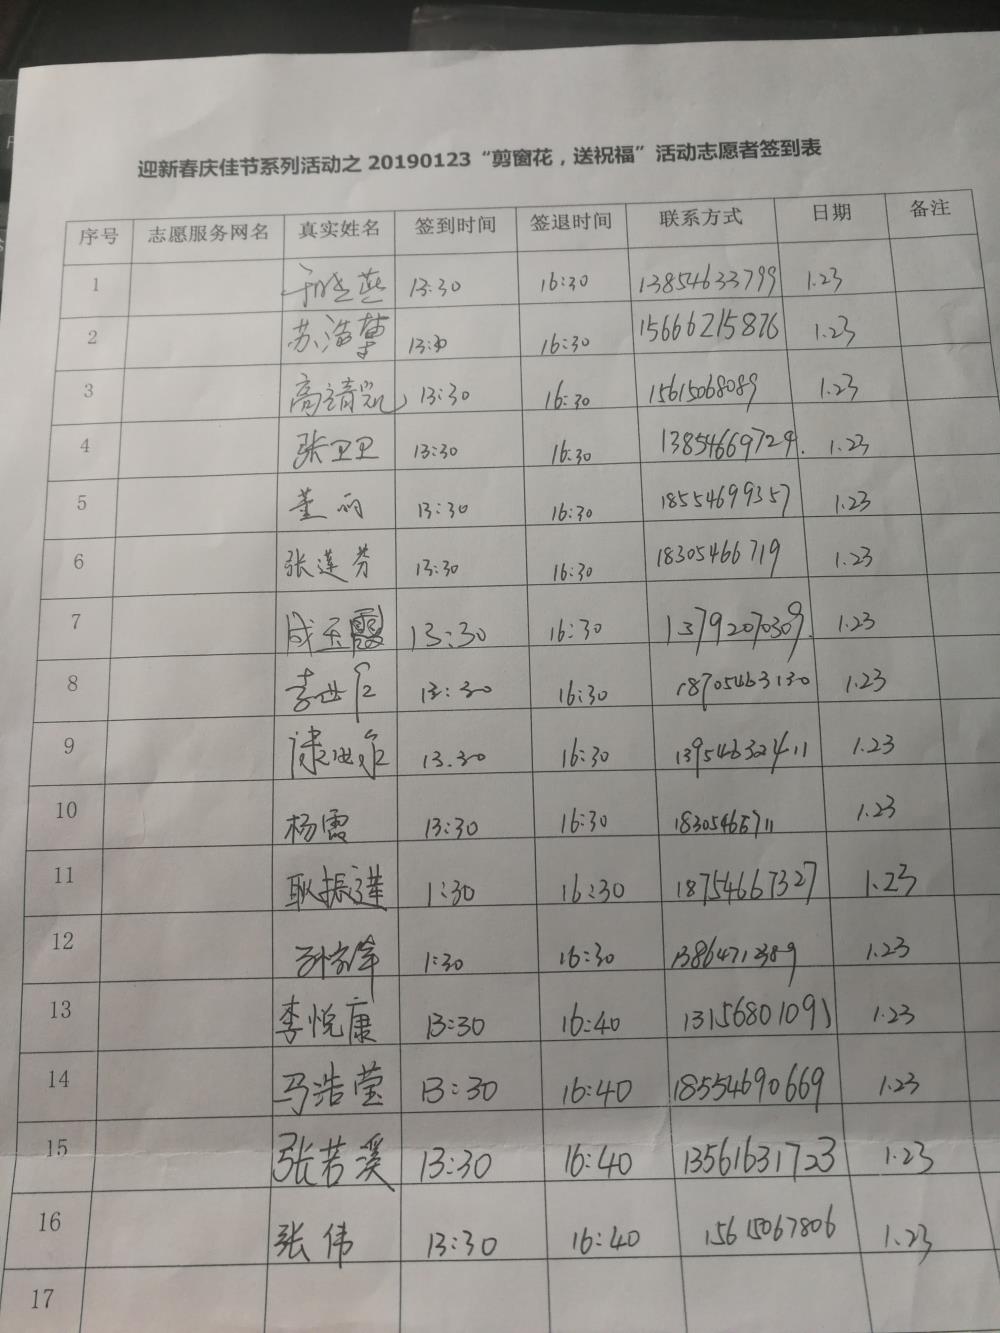 迎新春庆佳节系列活动之 20190123 “剪窗花，送祝福”活动志愿者签到表
序号 志愿服务网名 真实姓名 签到时间 签退时间 联系方式 日期 备注
1 于晓燕 13:30 16:30 13854633799 1.23
2 苏浩 13:30 16:30 15666215876 1.23
3 高靖凯 13:30 16:30 15615068089 1.23
4 张卫卫 13:30 16:30 13854669729. 1.23
5 董丽 13:30 16:30 18554699357 1.23
6 张莲芬 13:30 16:30 18305466719 1.23
7 咸玉霞 13:30 16:30 13792070309. 1.23
8 13:30 16:30 18705463130 1.23
9 13.30 16:30 13954632411 1.23
10 杨霞 13:30 16:30 18305465711 1.23
11 耿振莲 1:30 16:30 18754667327 1.23
12 1:30 16:30 13864712389 1.23
13 李悦康 13:30 16:40 13156801091 1.23
14 马浩莹 13:30 16:40 18554690669 1.23
15 张若溪 13:30 16:40 13561631723 1.23
16 张伟 13:30 16:40 15615067806 1.23
17